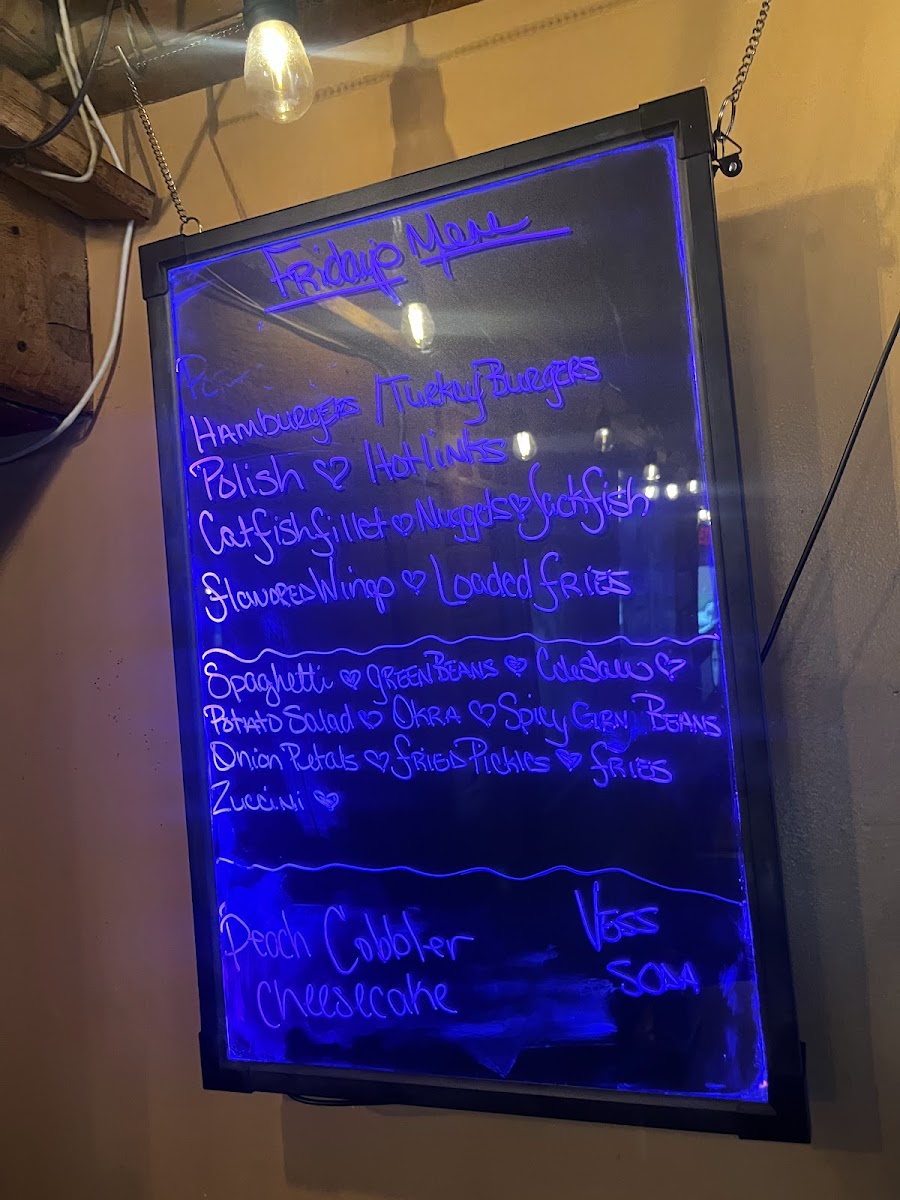 Friday's Menu
Hamburgers / Turkey Burgers
Polish ♡ Hotlinks
Catfish fillet ♡ Nuggets ♡ Jackfish
flavored Wings ♡ Loaded fries
Spaghetti ♡ green Beans ♡ Coleslaw ♡
Potato Salad ♡ Okra ♡ Spicy Corn Beans
Onion Petals ♡ fried Pickles ♡ fries
Zuccini ♡
Peach Cobbler Vess
Cheesecake Soda